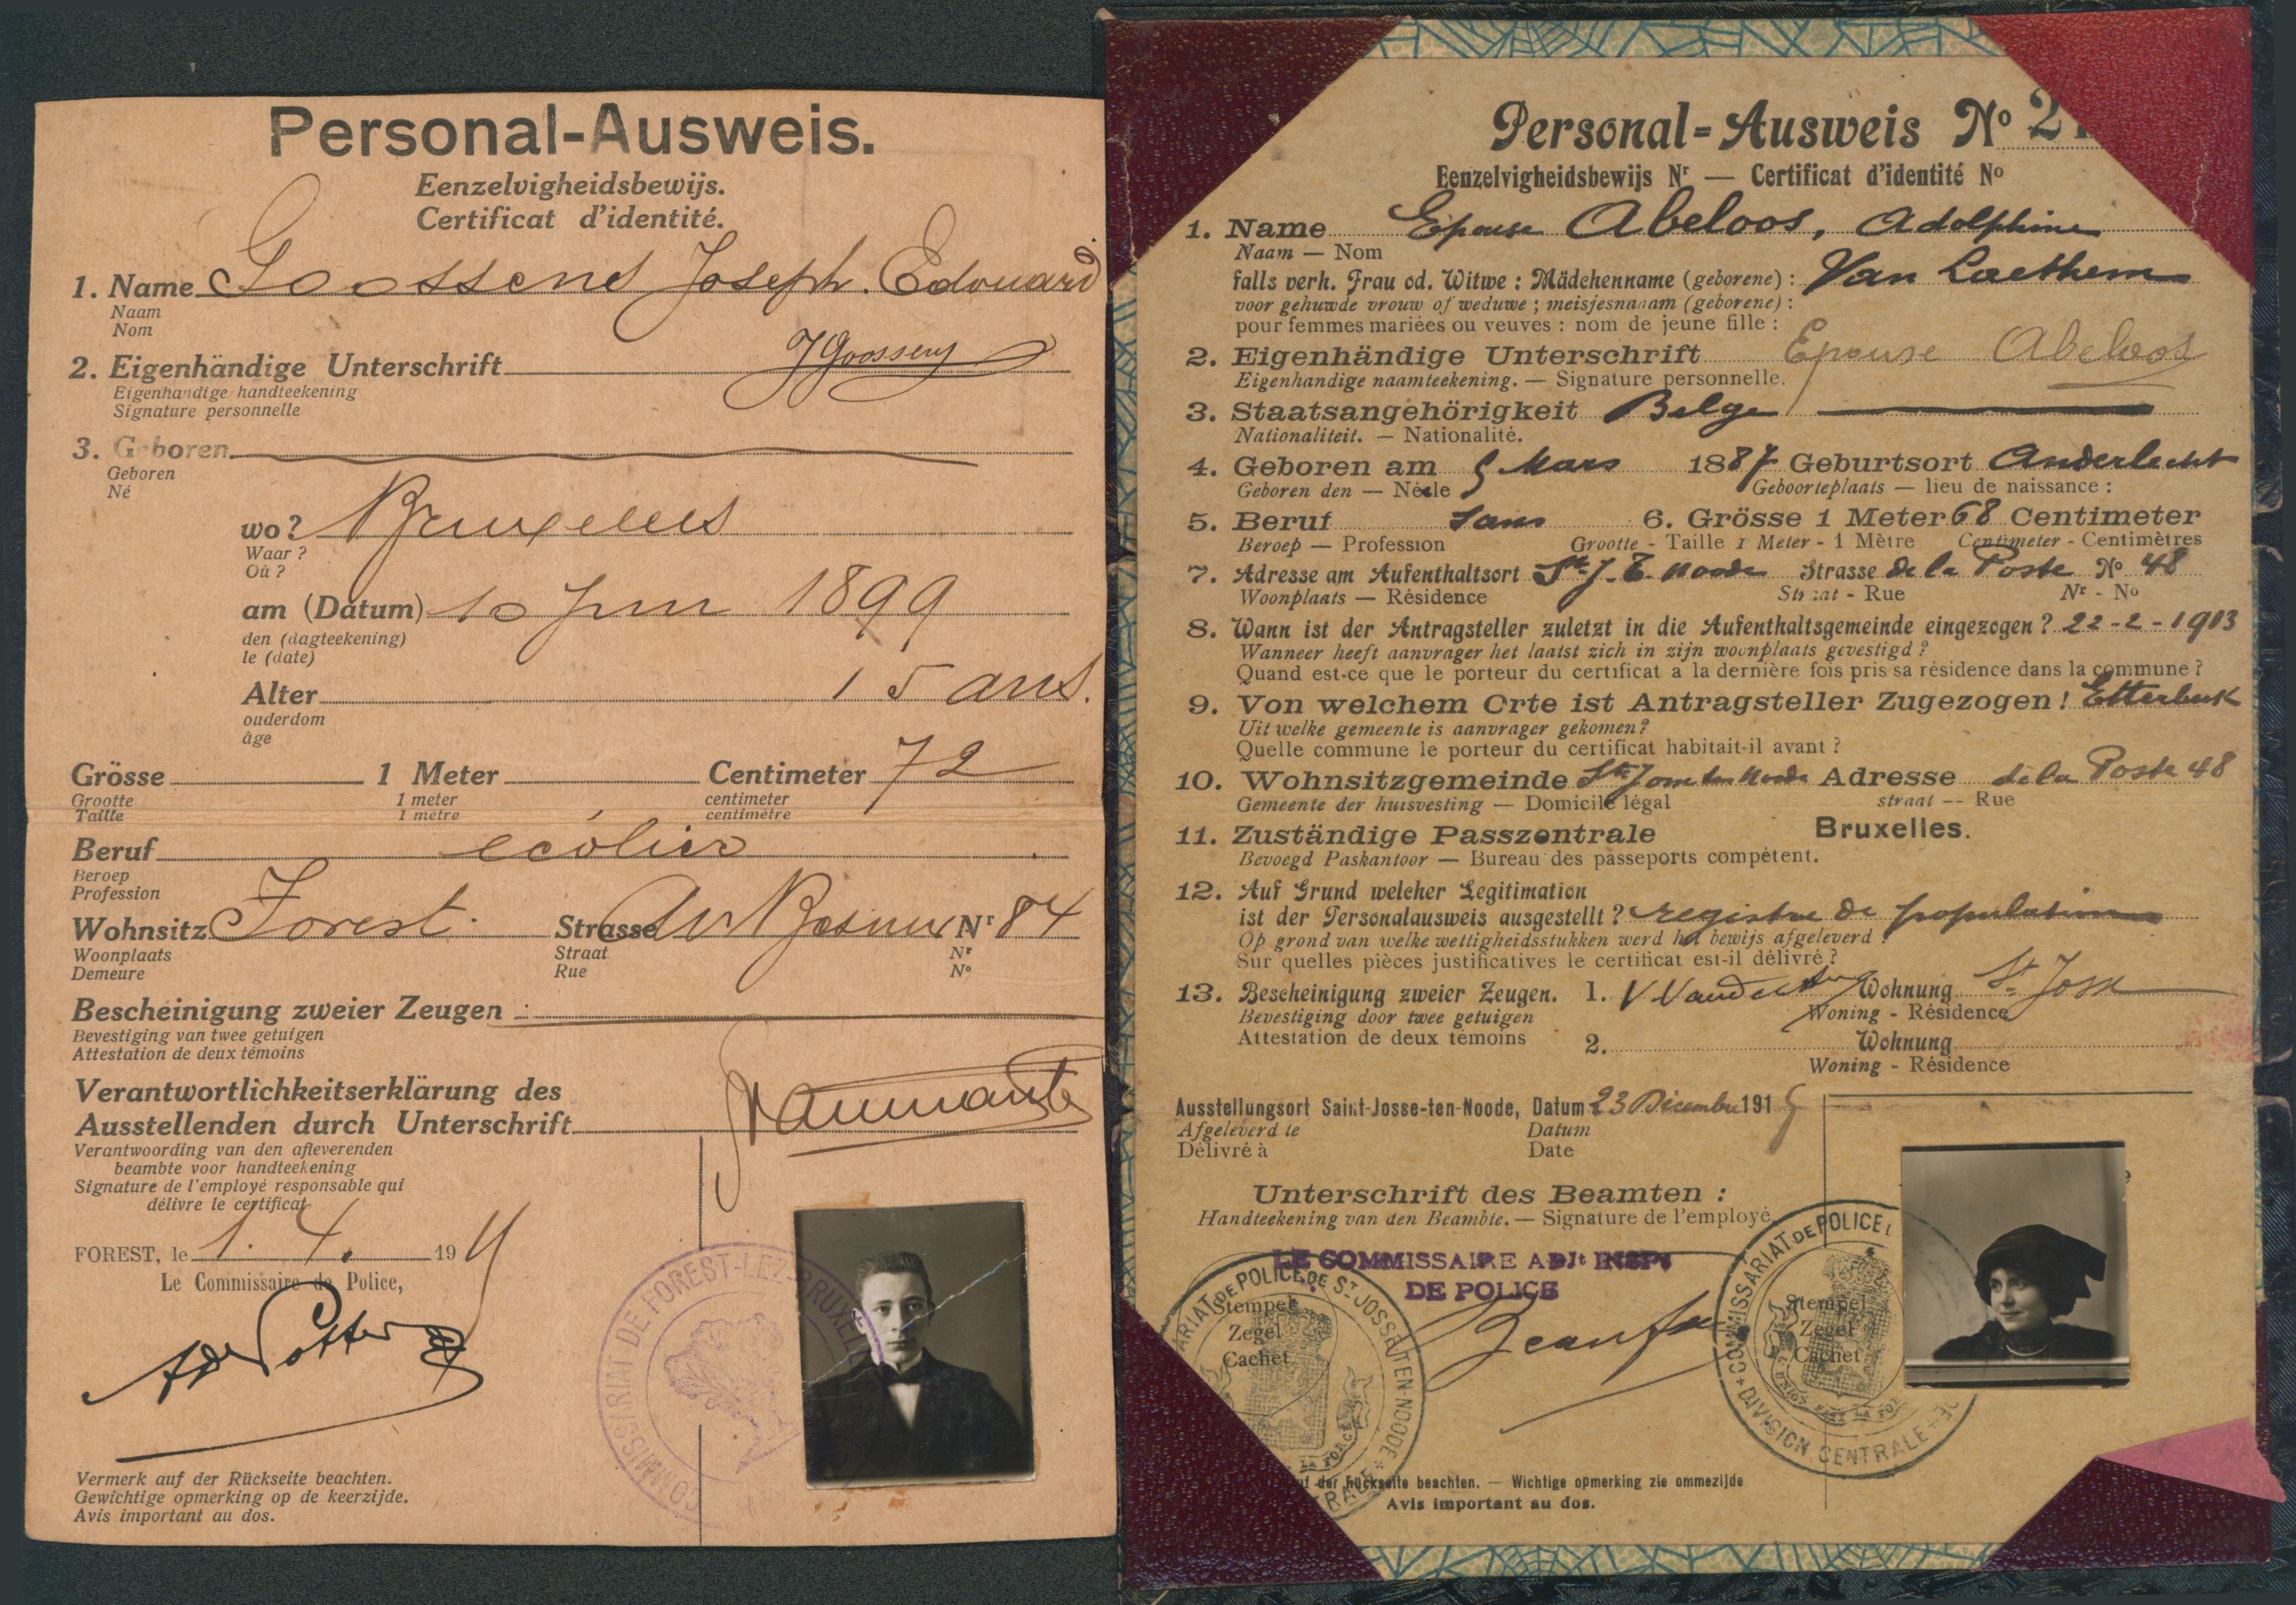 Personal-Ausweis.
Eenzelvigheidsbewijs.
Certificat d'identité.
1. Name Goossens Joseph. Edouard.
Naam
Nom
2. Eigenhändige Unterschrift JGoossens
Eigenhandige handteekening
Signature personnelle
3. Geboren
Geboren
Né
wo? Bruxelles
Waar ?
Où ?
am (Datum) 10 Juin 1899
den (dagteekening)
le (date)
Alter 15 ans.
ouderdom
âge
Grösse 1 Meter Centimeter 72
Grootte 1 meter centimeter
Taille 1 mètre centimètre
Beruf écolier
Beroep
Profession
Wohnsitz Forest. Strasse Av Besme Nr 84
Woonplaats Straat Nr
Demeure Rue No
Bescheinigung zweier Zeugen :
Bevestiging van twee getuigen
Attestation de deux témoins
Verantwortlichkeitserklärung des
Ausstellenden durch Unterschrift
Verantwoording van den afleverenden
beambte voor handteekening
Signature de l'employé responsable qui
délivre le certificat
FOREST, le 1. 4. 19
Le Commissaire de Police,
COMMISSARIAT DE FOREST-LEZ-BRUXELLES
Vermerk auf der Rückseite beachten.
Gewichtige opmerking op de keerzijde.
Avis important au dos.
Personal-Ausweis No 2
Eenzelvigheidsbewijs Nr — Certificat d'identité No
1. Name Epouse Abeloos, Adolphine
Naam — Nom
falls verh. Frau od. Witwe : Mädchenname (geborene) : Van Laethem
voor gehuwde vrouw of weduwe ; meisjesnaaam (geborene) :
pour femmes mariées ou veuves : nom de jeune fille :
2. Eigenhändige Unterschrift Epouse Abeloos
Eigenhandige naamteekening. — Signature personnelle.
3. Staatsangehörigkeit Belge
Nationaliteit. — Nationalité.
4. Geboren am 5 Mars 1887 Geburtsort Anderlecht
Geboren den — Née le Geboorteplaats — lieu de naissance :
5. Beruf Sans 6. Grösse 1 Meter 68 Centimeter
Beroep — Profession Grootte - Taille 1 Meter - 1 Mètre Centimeter - Centimètres
7. Adresse am Aufenthaltsort St. J. T. Noode Strasse de la Poste No 48
Woonplaats — Résidence Straat - Rue Nr - No
8. Wann ist der Antragsteller zuletzt in die Aufenthaltsgemeinde eingezogen ? 22-2-1913
Wanneer heeft aanvrager het laatst zich in zijn woonplaats gevestigd ?
Quand est-ce que le porteur du certificat a la dernière fois pris sa résidence dans la commune ?
9. Von welchem Orte ist Antragsteller Zugezogen ! Etterbeek
Uit welke gemeente is aanvrager gekomen?
Quelle commune le porteur du certificat habitait-il avant ?
10. Wohnsitzgemeinde St Josse ten Noode Adresse de la Poste 48
Gemeente der huisvesting — Domicile légal straat -- Rue
11. Zuständige Passzentrale Bruxelles.
Bevoegd Paskantoor — Bureau des passeports compétent.
12. Auf Grund welcher Legitimation
ist der Personalausweis ausgestellt ? registre de population
Op grond van welke wettigheidsstukken werd het bewijs afgeleverd ?
Sur quelles pièces justificatives le certificat est-il délivré ?
13. Bescheinigung zweier Zeugen. 1. Wohnung St. Josse
Bevestiging door twee getuigen Woning - Résidence
Attestation de deux témoins 2. Wohnung
Woning - Résidence
Ausstellungsort Saint-Josse-ten-Noode, Datum 23 Décembre 1915
Afgeleverd te Datum
Délivré à Date
Unterschrift des Beamten :
Handteekening van den Beambte. — Signature de l'employé
LE COMMISSAIRE ADJt INSPr
DE POLICE
Stempel
Zegel
Cachet
Stempel
Zegel
Cachet
COMMISSARIAT DE POLICE DE ST JOSSE-TEN-NOODE
COMMISSARIAT DE POLICE
DIVISION CENTRALE
auf der Rückseite beachten. — Wichtige opmerking zie ommezijde
Avis important au dos.